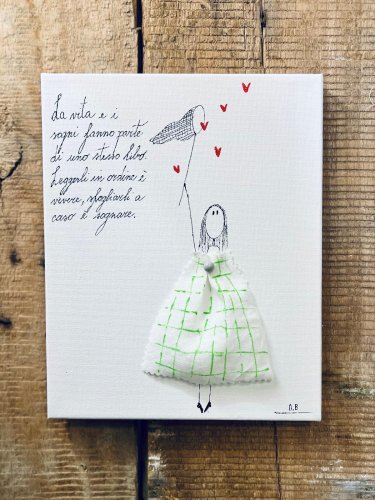 La vita e i
sogni fanno parte
di uno stesso libro.
Leggerli in ordine è
vivere, sfogliarli a
caso è sognare.
D.B